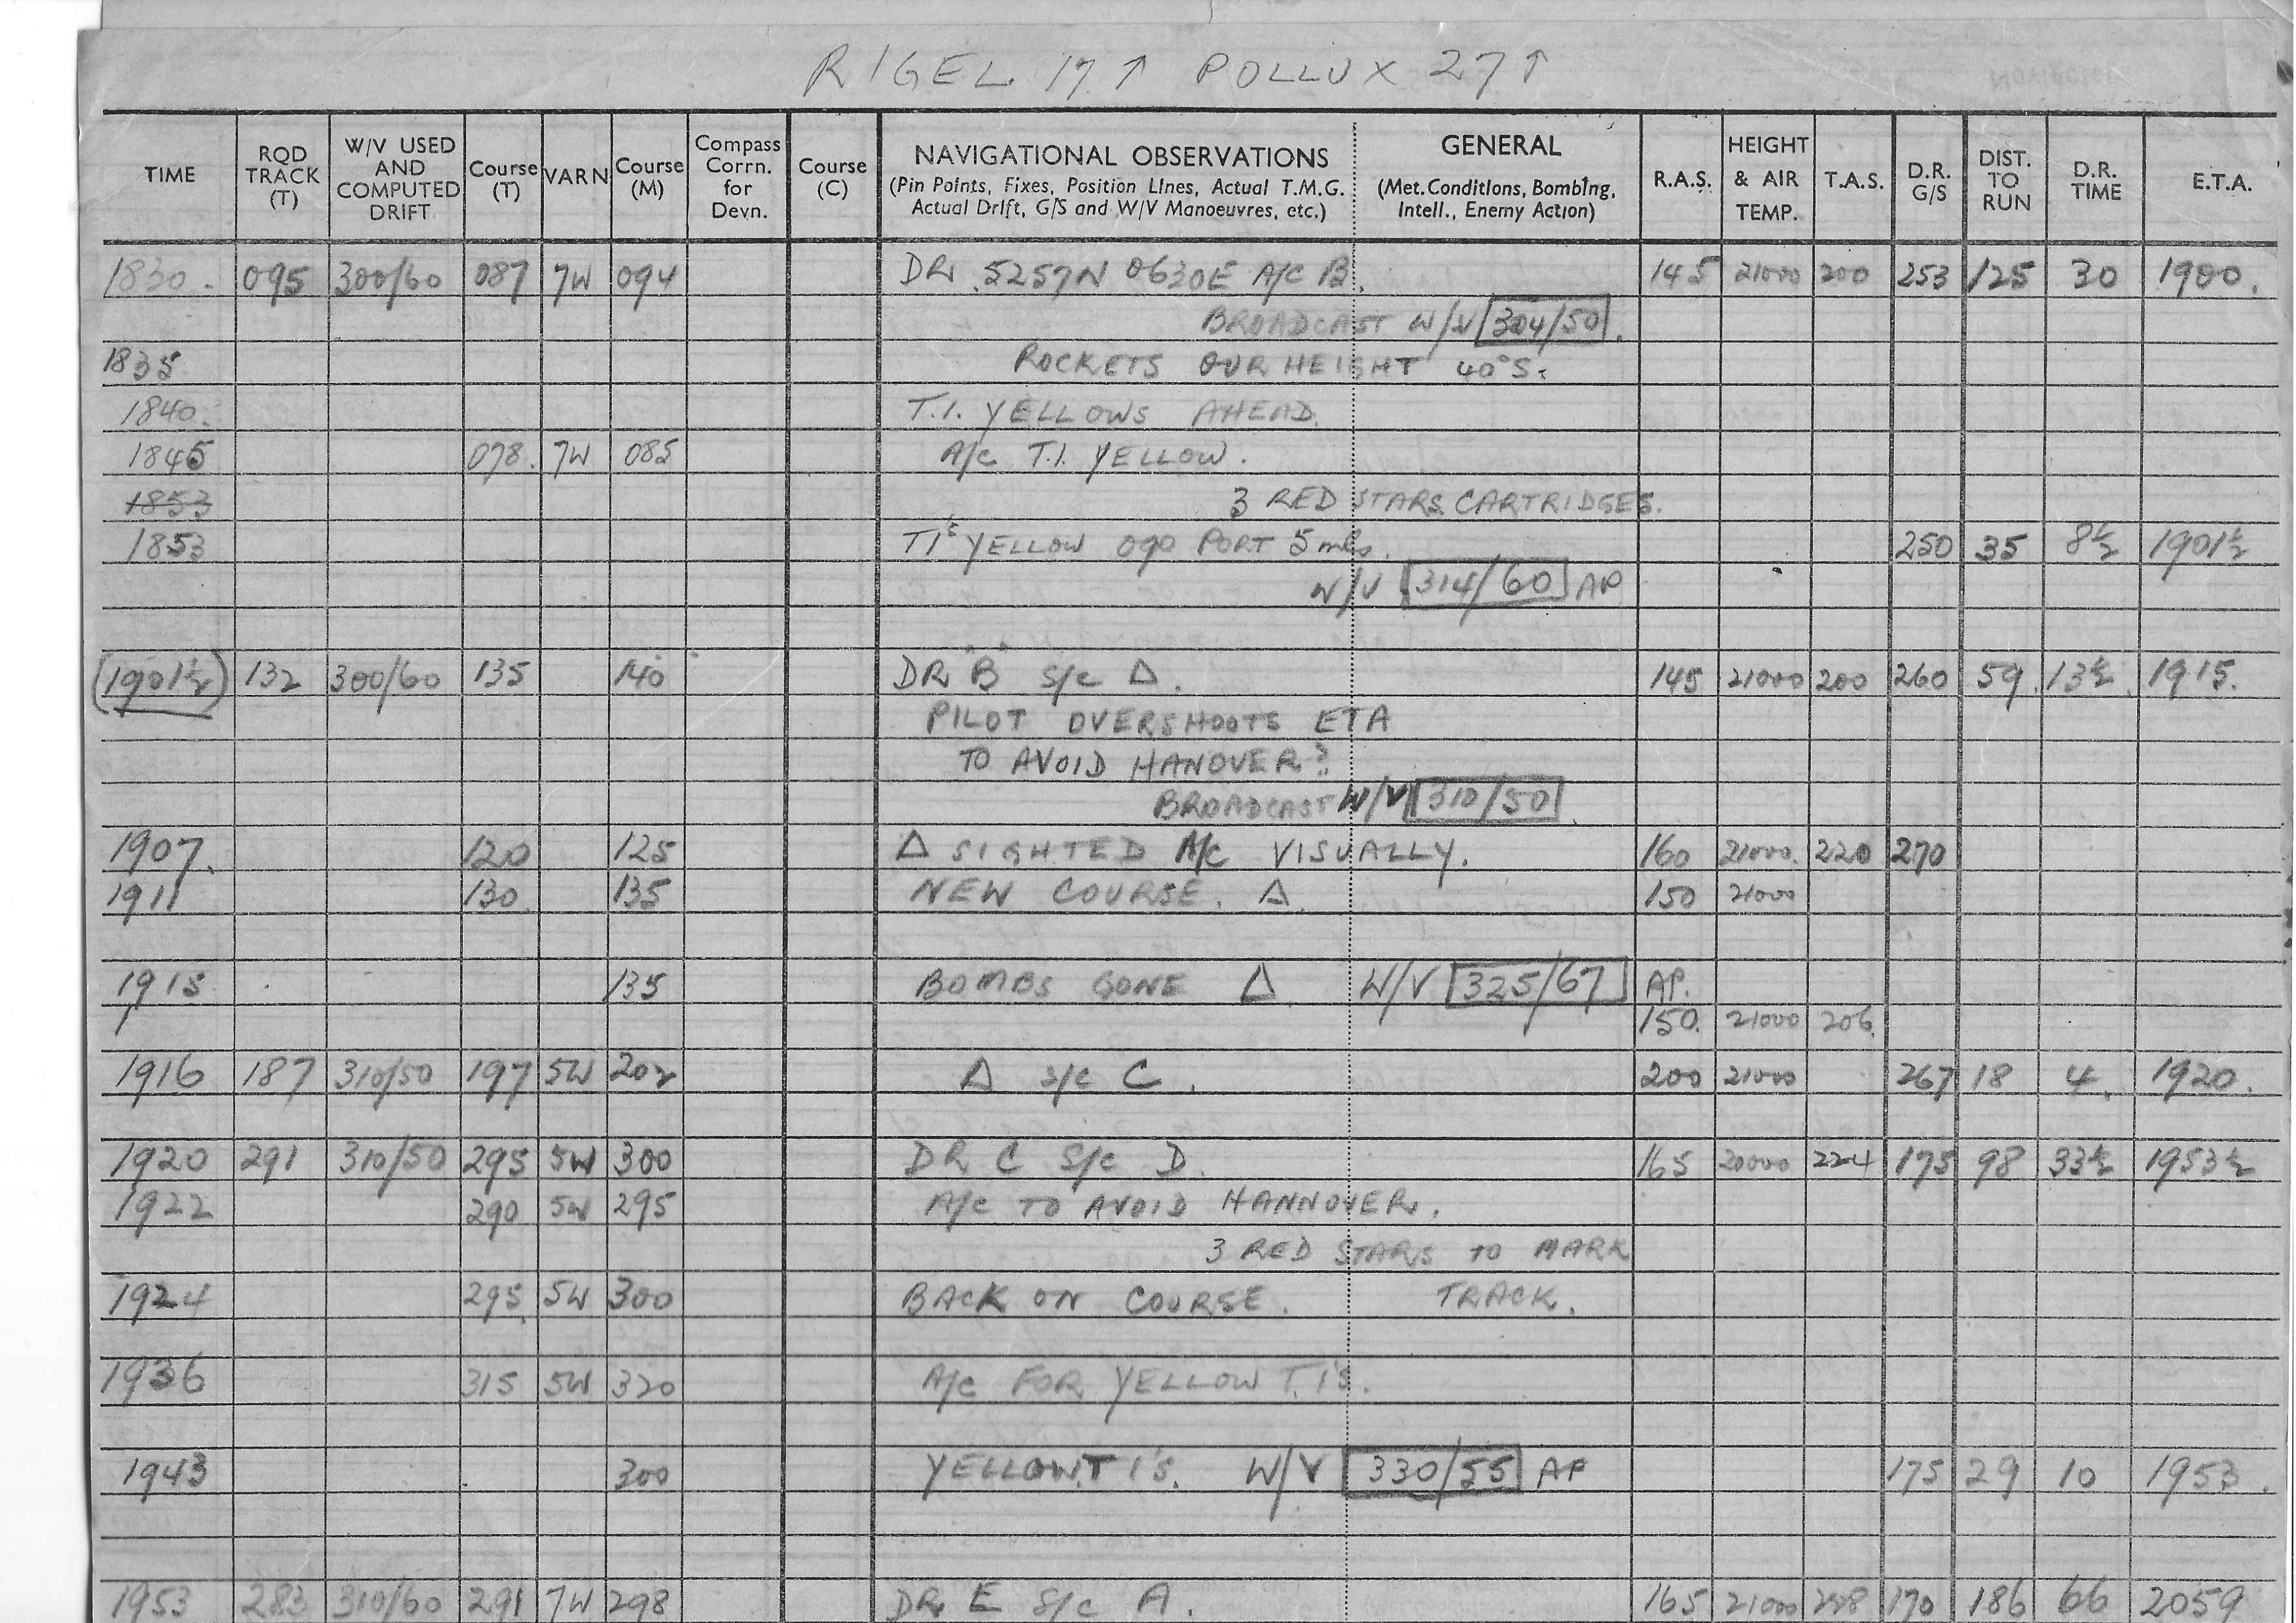 RIGEL 17↑ POLLUX 27↑
TIME RQD TRACK (T) W/V USED AND COMPUTED DRIFT Course (T) VARN Course (M) Compass Corrn. for Devn. Course (C) NAVIGATIONAL OBSERVATIONS (Pin Points, Fixes, Position Lines, Actual T.M.G. Actual Drift, G/S and W/V Manoeuvres, etc.) GENERAL (Met. Conditions, Bombing, Intell., Enemy Action) R.A.S. HEIGHT & AIR TEMP. T.A.S. D.R. G/S DIST. TO RUN D.R. TIME E.T.A.
1830. 095 300/60 087 7W 094 DR 5257N 0630E A/C B. 145 21000 200 253 125 30 1900.
BROADCAST W/V 304/50.
1835 ROCKETS OUR HEIGHT 40°S.
1840. T.I. YELLOWS AHEAD.
1845 078. 7W 085 A/C T.I. YELLOW.
1853 3 RED STARS CARTRIDGES.
1853 TI'S YELLOW 090 PORT 5 mls. 250 35 8½ 1901½
W/V 314/60 AP
(1901½) 132 300/60 135 140 DR "B" S/C Δ. 145 21000 200 260 59. 13½. 1915.
PILOT OVERSHOOTS ETA
TO AVOID HANOVER?
BROADCAST W/V 310/50.
1907. 120 125 Δ SIGHTED A/C VISUALLY. 160 21000. 220 270
1911 130. 135 NEW COURSE. Δ. 150 21000
1915 135 BOMBS GONE Δ. W/V 325/67 AP.
150. 21000 206.
1916 187 310/50 197 5W 202 Δ S/C C. 200 21000 267 18 4. 1920.
1920 291 310/50 295 5W 300 DR C S/C D. 165 20000 224 175 98 33½ 1953½
1922 290 5W 295 A/C TO AVOID HANNOVER.
3 RED STARS TO MARK
1924 295 5W 300 BACK ON COURSE. TRACK.
1936 315 5W 320 A/C FOR YELLOW T.I'S.
1943 300 YELLOW T I'S. W/V 330/55 AP 175 29 10 1953.
1953 283 310/60 291 7W 298 DR E S/C A. 165 21000 170 186 66 2059